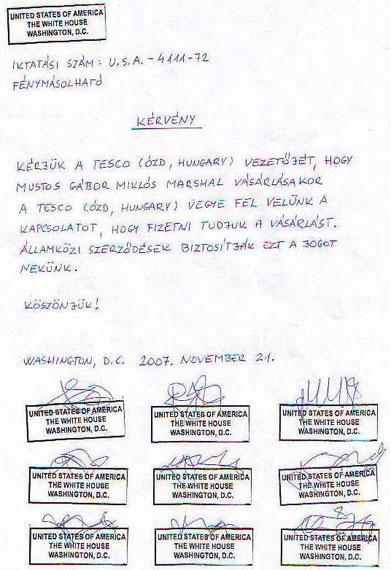 UNITED STATES OF AMERICA
THE WHITE HOUSE
WASHINGTON, D.C.
IKTATÁSI SZÁM: U.S.A. - 4111-72
FÉNYMÁSOLHATÓ
KÉRVÉNY
KÉRJÜK A TESCO (ÓZD, HUNGARY) VEZETŐJÉT, HOGY
MUSTOS GÁBOR MIKLÓS MARSHAL VÁSÁRLÁSAKOR
A TESCO (ÓZD, HUNGARY) VEGYE FEL VELÜNK A
KAPCSOLATOT, HOGY FIZETNI TUDJUK A VÁSÁRLÁST.
ÁLLAMKÖZI SZERZŐDÉSEK BIZTOSÍTJÁK EZT A JOGOT
NEKÜNK.
KÖSZÖNJÜK!
WASHINGTON, D.C. 2007. NOVEMBER 21.
UNITED STATES OF AMERICA
THE WHITE HOUSE
WASHINGTON, D.C.
UNITED STATES OF AMERICA
THE WHITE HOUSE
WASHINGTON, D.C.
UNITED STATES OF AMERICA
THE WHITE HOUSE
WASHINGTON, D.C.
UNITED STATES OF AMERICA
THE WHITE HOUSE
WASHINGTON, D.C.
UNITED STATES OF AMERICA
THE WHITE HOUSE
WASHINGTON, D.C.
UNITED STATES OF AMERICA
THE WHITE HOUSE
WASHINGTON, D.C.
UNITED STATES OF AMERICA
THE WHITE HOUSE
WASHINGTON, D.C.
UNITED STATES OF AMERICA
THE WHITE HOUSE
WASHINGTON, D.C.
UNITED STATES OF AMERICA
THE WHITE HOUSE
WASHINGTON, D.C.